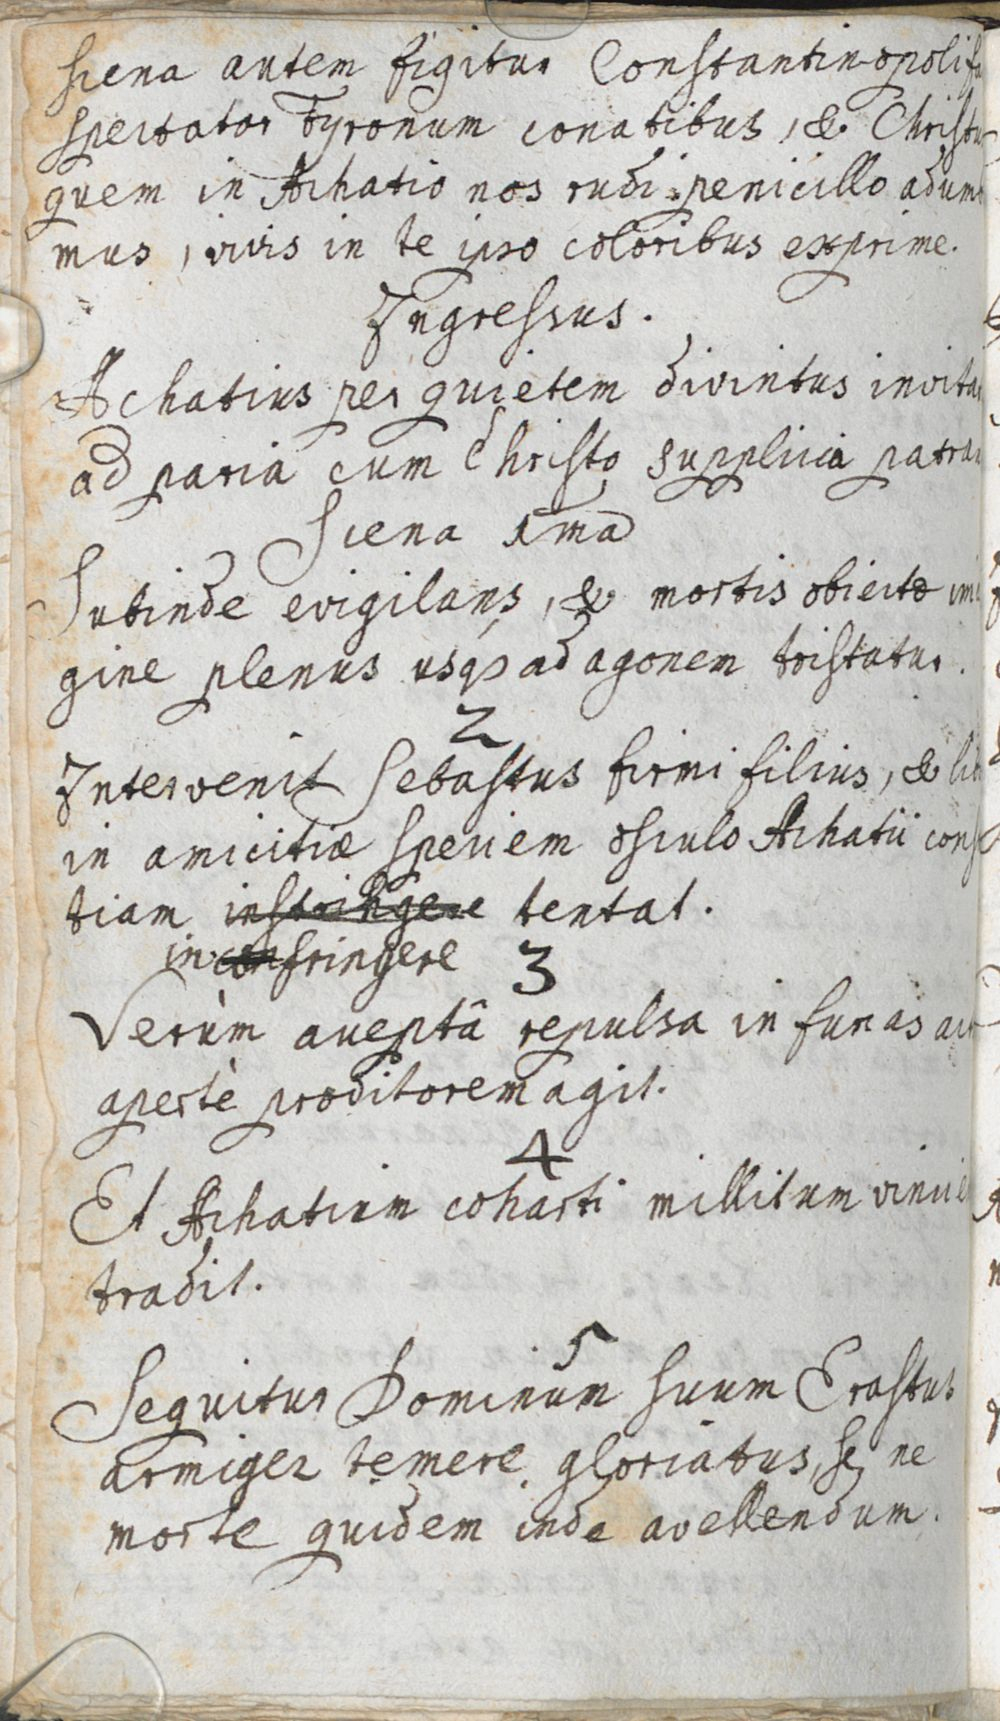 Scena autem figitur Constantinopoli fa
spectator Tyronum conatibus, & Christu
quem in Achatio nos rudi penicillo adum
mus, vivis in te ipso coloribus exprime.
Ingressus.
Achatius per quietem divinitus invita
ad paria cum Christo supplicia patran
Scena 1ma
Subinde evigilans, & mortis obiectæ im
gine plenus usq3 ad agonem tristatur.
2
Intervenit Sebastus firmi filius, & li
in amicitiæ speciem osculo Achatii cons
tiam instringere tentat.
in con fringere
3
Verùm acceptâ repulsa in furias ac
apertè proditorem agit.
4
Et Achatium coharti millitum vinci
tradit.
5
Sequitur Dominum suum Erastus
armiger temere gloriatus, se ne
morte quidem inde avellendum.